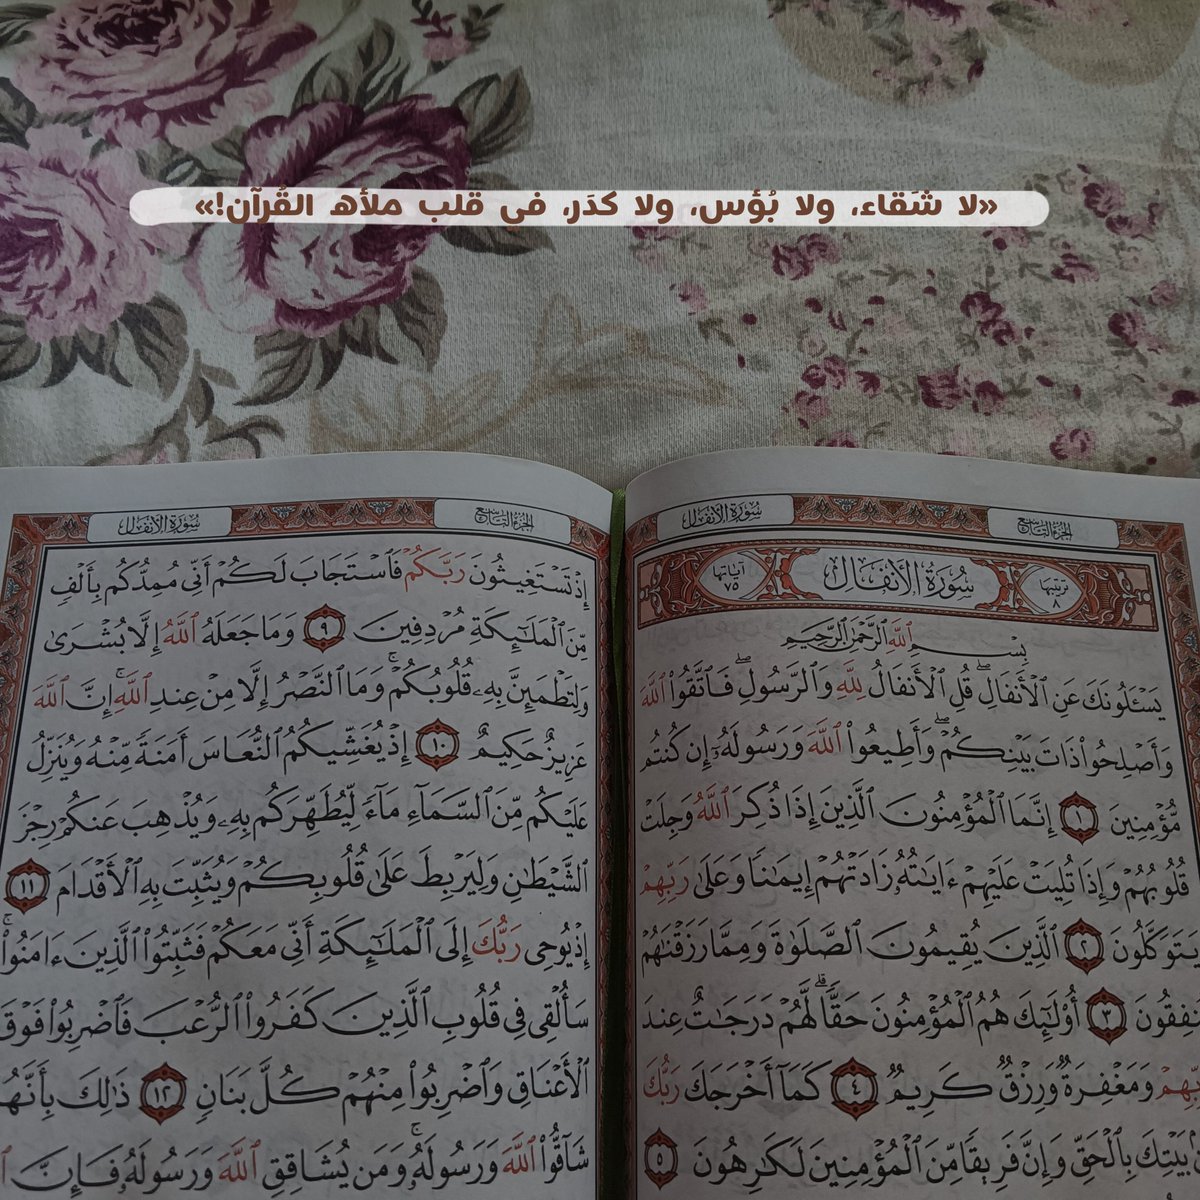 «لا شَقاء، ولا بُؤس، ولا كدَر، في قلب ملأه القُرآن!»
سُورَةُ الأَنفَال
الجُزءُ التَّاسِع
تَرتِيبُهَا ٨
سُورَةُ الأَنفَالِ
آيَاتُهَا ٧٥
بِسۡمِ ٱللَّهِ ٱلرَّحۡمَٰنِ ٱلرَّحِيمِ
يَسۡـَٔلُونَكَ عَنِ ٱلۡأَنفَالِۖ قُلِ ٱلۡأَنفَالُ لِلَّهِ وَٱلرَّسُولِۖ فَٱتَّقُواْ ٱللَّهَ
وَأَصۡلِحُواْ ذَاتَ بَيۡنِكُمۡۖ وَأَطِيعُواْ ٱللَّهَ وَرَسُولَهُۥٓ إِن كُنتُم
مُّؤۡمِنِينَ ١ إِنَّمَا ٱلۡمُؤۡمِنُونَ ٱلَّذِينَ إِذَا ذُكِرَ ٱللَّهُ وَجِلَتۡ
قُلُوبُهُمۡ وَإِذَا تُلِيَتۡ عَلَيۡهِمۡ ءَايَٰتُهُۥ زَادَتۡهُمۡ إِيمَٰنٗا وَعَلَىٰ رَبِّهِمۡ
يَتَوَكَّلُونَ ٢ ٱلَّذِينَ يُقِيمُونَ ٱلصَّلَوٰةَ وَمِمَّا رَزَقۡنَٰهُمۡ
يُنفِقُونَ ٣ أُوْلَٰٓئِكَ هُمُ ٱلۡمُؤۡمِنُونَ حَقّٗاۚ لَّهُمۡ دَرَجَٰتٌ عِندَ
رَبِّهِمۡ وَمَغۡفِرَةٞ وَرِزۡقٞ كَرِيمٞ ٤ كَمَآ أَخۡرَجَكَ رَبُّكَ
مِنۢ بَيۡتِكَ بِٱلۡحَقِّ وَإِنَّ فَرِيقٗا مِّنَ ٱلۡمُؤۡمِنِينَ لَكَٰرِهُونَ ٥
سُورَةُ الأَنفَال
الجُزءُ التَّاسِع
إِذۡ تَسۡتَغِيثُونَ رَبَّكُمۡ فَٱسۡتَجَابَ لَكُمۡ أَنِّي مُمِدُّكُم بِأَلۡفٖ
مِّنَ ٱلۡمَلَٰٓئِكَةِ مُرۡدِفِينَ ٩ وَمَا جَعَلَهُ ٱللَّهُ إِلَّا بُشۡرَىٰ
وَلِتَطۡمَئِنَّ بِهِۦ قُلُوبُكُمۡۚ وَمَا ٱلنَّصۡرُ إِلَّا مِنۡ عِندِ ٱللَّهِۚ إِنَّ ٱللَّهَ
عَزِيزٌ حَكِيمٌ ١٠ إِذۡ يُغَشِّيكُمُ ٱلنُّعَاسَ أَمَنَةٗ مِّنۡهُ وَيُنَزِّلُ
عَلَيۡكُم مِّنَ ٱلسَّمَآءِ مَآءٗ لِّيُطَهِّرَكُم بِهِۦ وَيُذۡهِبَ عَنكُمۡ رِجۡزَ
ٱلشَّيۡطَٰنِ وَلِيَرۡبِطَ عَلَىٰ قُلُوبِكُمۡ وَيُثَبِّتَ بِهِ ٱلۡأَقۡدَامَ ١١
إِذۡ يُوحِي رَبُّكَ إِلَى ٱلۡمَلَٰٓئِكَةِ أَنِّي مَعَكُمۡ فَثَبِّتُواْ ٱلَّذِينَ ءَامَنُواْۚ
سَأُلۡقِي فِي قُلُوبِ ٱلَّذِينَ كَفَرُواْ ٱلرُّعۡبَ فَٱضۡرِبُواْ فَوۡقَ
ٱلۡأَعۡنَاقِ وَٱضۡرِبُواْ مِنۡهُمۡ كُلَّ بَنَانٖ ١٢ ذَٰلِكَ بِأَنَّهُمۡ
شَآقُّواْ ٱللَّهَ وَرَسُولَهُۥۚ وَمَن يُشَاقِقِ ٱللَّهَ وَرَسُولَهُۥ فَإِنَّ